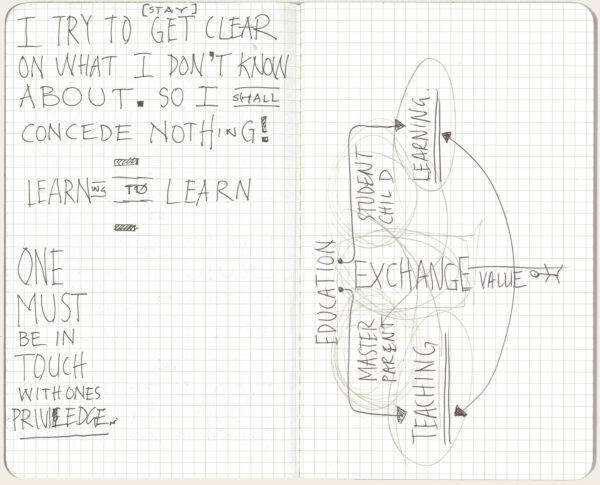 [STAY]
I TRY TO GET CLEAR
ON WHAT I DON'T KNOW
ABOUT. SO I SHALL
CONCEDE NOTHING!
LEARNING TO LEARN
ONE
MUST
BE IN
TOUCH
WITH ONES
PRIVILEDGE..
EDUCATION
MASTER
PARENT
STUDENT
CHILD
TEACHING
LEARNING
EXCHANGE VALUE